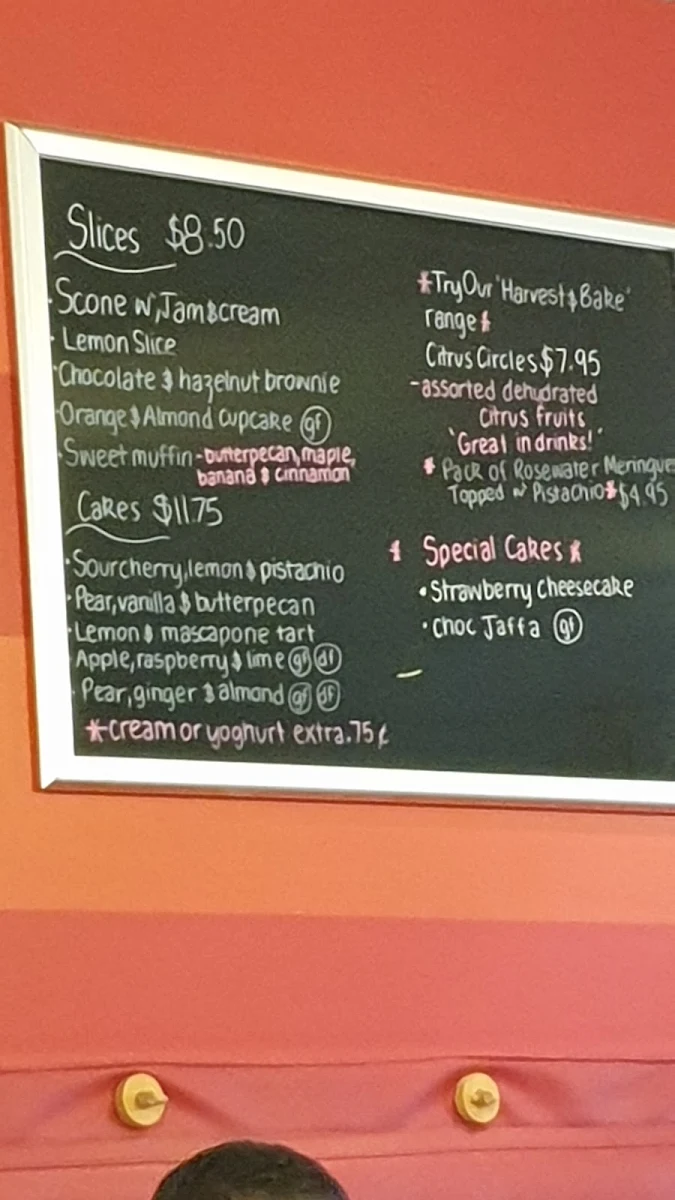 Slices $8.50
·Scone w, Jam $ cream
·Lemon Slice
·Chocolate $ hazelnut brownie
·Orange $ Almond cupcake gf
·Sweet muffin - butterpecan, maple,
banana $ cinnamon
Cakes $11.75
·Sourcherry, lemon $ pistachio
·Pear, vanilla $ butterpecan
·Lemon $ mascapone tart
Apple, raspberry $ lime gf df
·Pear, ginger $ almond gf df
*cream or yoghurt extra .75¢
*Try Our 'Harvest $ Bake'
range*
Citrus Circles $7.95
-assorted dehydrated
citrus fruits
"Great in drinks!"
* Pack of Rosewater Meringue
Topped w Pistachio * $4.95
* Special Cakes *
·Strawberry Cheesecake
·Choc Jaffa gf